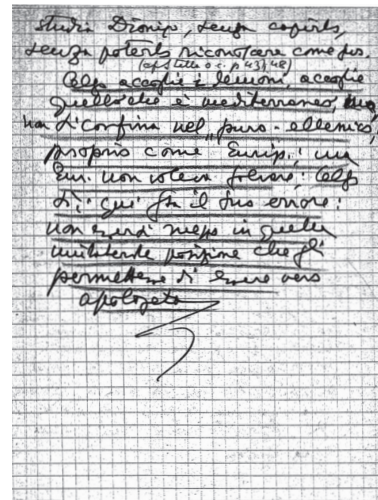 studia Dioniso, senza capirlo,
senza poterlo riconoscere come suo.
(cfr Stella o.c. p 43/48)
Celso accoglie i demoni, accoglie
quello che è mediterraneo, ma
non si confina nel "puro-ellenico,
proprio come Eurip.: ma
Eur. non voleva salvare: Celso
sì: qui sta il suo errore:
non essersi messo in quella
unilaterale posizione che gli
permettesse di essere vero
apologeta